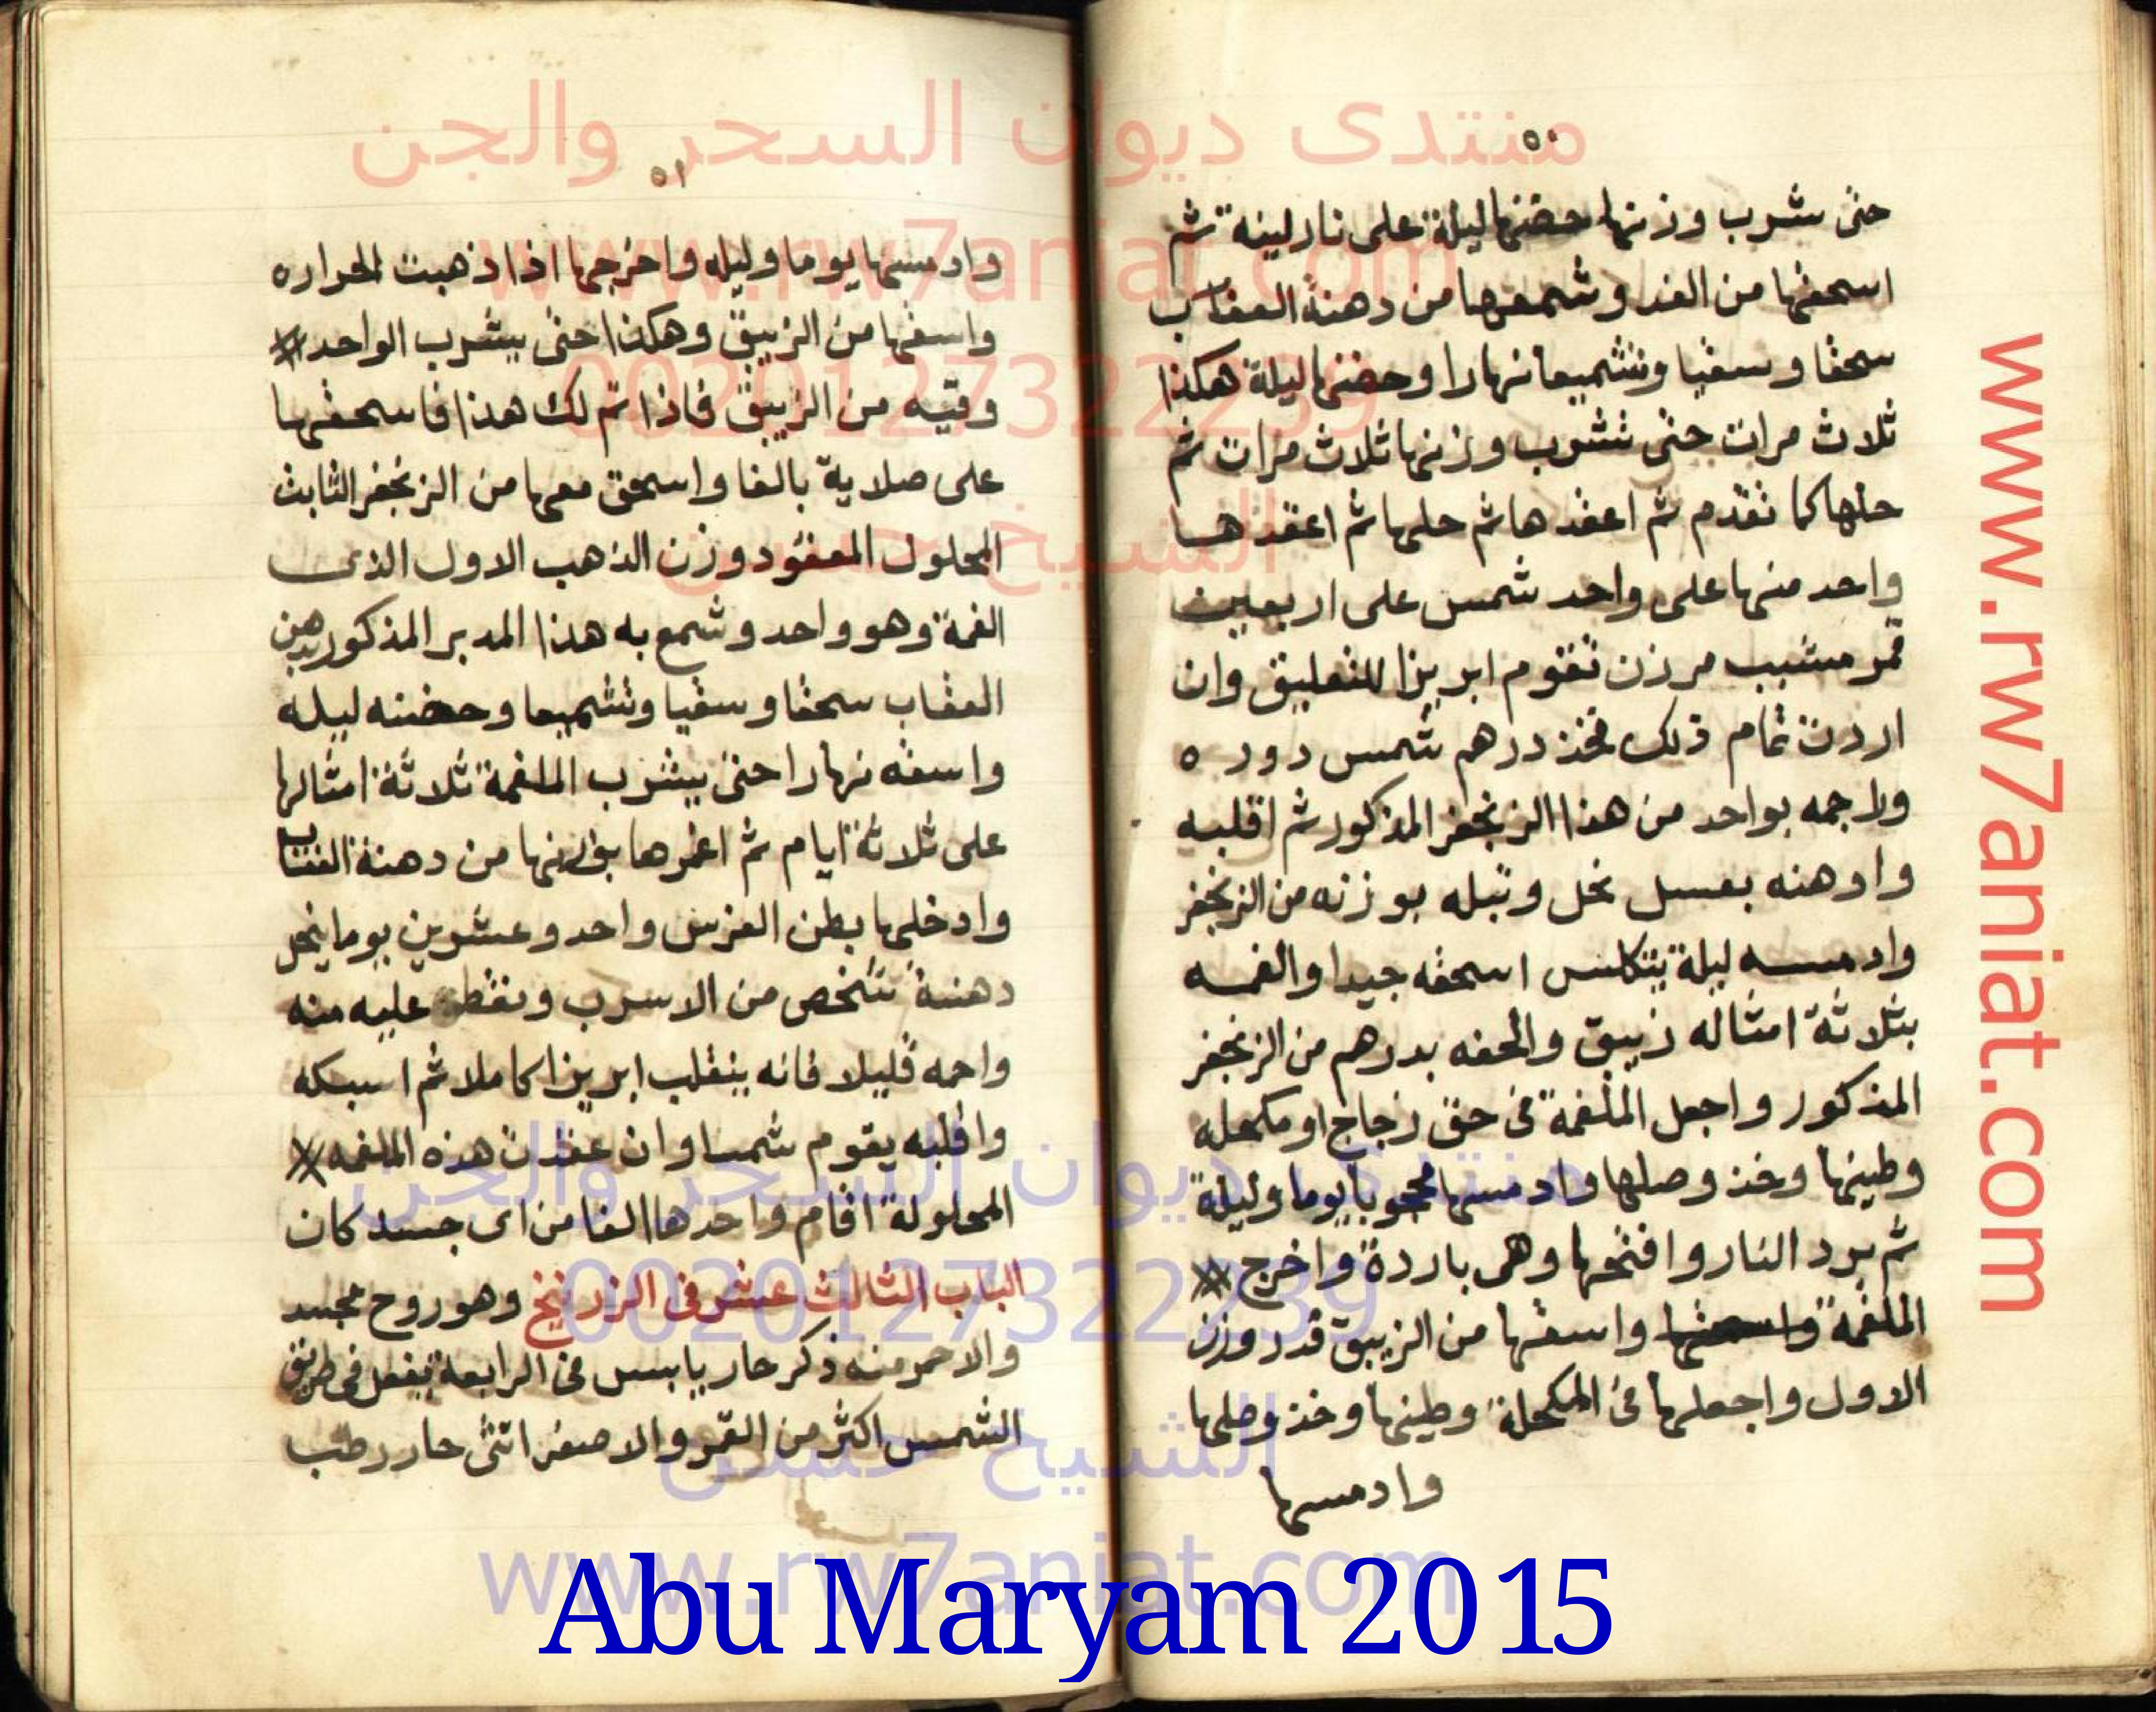 منتدى ديوان السحر والجن
www.rw7aniat.com
00201273222239
الشيخ حسن
٥٠
حتى تشرب وزنها حضنها ليلة على نار لينة ثم
اسحقها من الغد وشمعها من دهنة العقاب
سحقا وسقيا وتشميعا نهارا وحضنها ليلة هكذا
ثلاث مرات حتى تشرب وزنها ثلاث مرات ثم
حلها كما تقدم ثم اعقدها ثم حلها ثم اعقدها
واحد منها على واحد شمس على اربعين
قمر مشبب مرزن تقوم ابريزا للتعليق وان
اردت تمام ذلك فخذ درهم شمس دوره
ولاجمه بواحد من هذا الزنجفر المذكور ثم اقلبه
وادهنه بعسل نحل وتبله بوزنه من الزنجفر
وادمسه ليلة يتكلس اسحقه جيدا والغمه
بثلاثة امثاله زيبق والحقه بدرهم من الزنجفر
المذكور واجعل الملغمة فى حق زجاج او مكحله
وطينها وخذ وصلها وادمسها محجوبا يوما وليلة
ثم برد النار وافتحها وهى باردة واخرج
الملغمة واسقها من الزيبق قدر وزن
الاول واجعلها فى المكحلة وطينها وخذ وصلها
وادمسها
٥١
وادمسها يوما وليله واخرجها اذا ذهبت الحراره
واسقها من الزيبق وهكذا حتى يشرب الواحد
وقيه من الزيبق فاذا تم لك هذا فاسحقها
على صلاية بالغا واسحق معها من الزنجفر الثابت
المحلول المعقود وزن الذهب الاول الذى
الغمة وهو واحد وشمع به هذا المدبر المذكور بدهن
العقاب سحقا وسقيا وتشميعا وحضنه ليله
واسقه نهارا حتى يشرب الملغمة ثلاثة امثالها
على ثلاثة ايام ثم اغمرها بوزنها من دهنة العقاب
وادخلها بطن الفرس واحد وعشرين يوما ينحل
دهنة تشخص من الاسرب ونقط عليه منه
واحمه قليلا فانه ينقلب ابريزا كاملا ثم اسبكه
واقلبه يقوم شمسا وان عقدت هذه الملغمه
المحلولة اقام واحدها الفا من اى جسد كان
الباب الثالث عشر فى الزرنيخ وهو روح مجسد
والاحمر منه ذكر حار يابس فى الرابعة يفعل فى طريق
الشمس اكثر من القمر والاصفر انثى حار رطب
منتدى ديوان السحر والجن
00201273222239
الشيخ حسن
www.rw7aniat.com
www.rw7aniat.com
Abu Maryam 2015